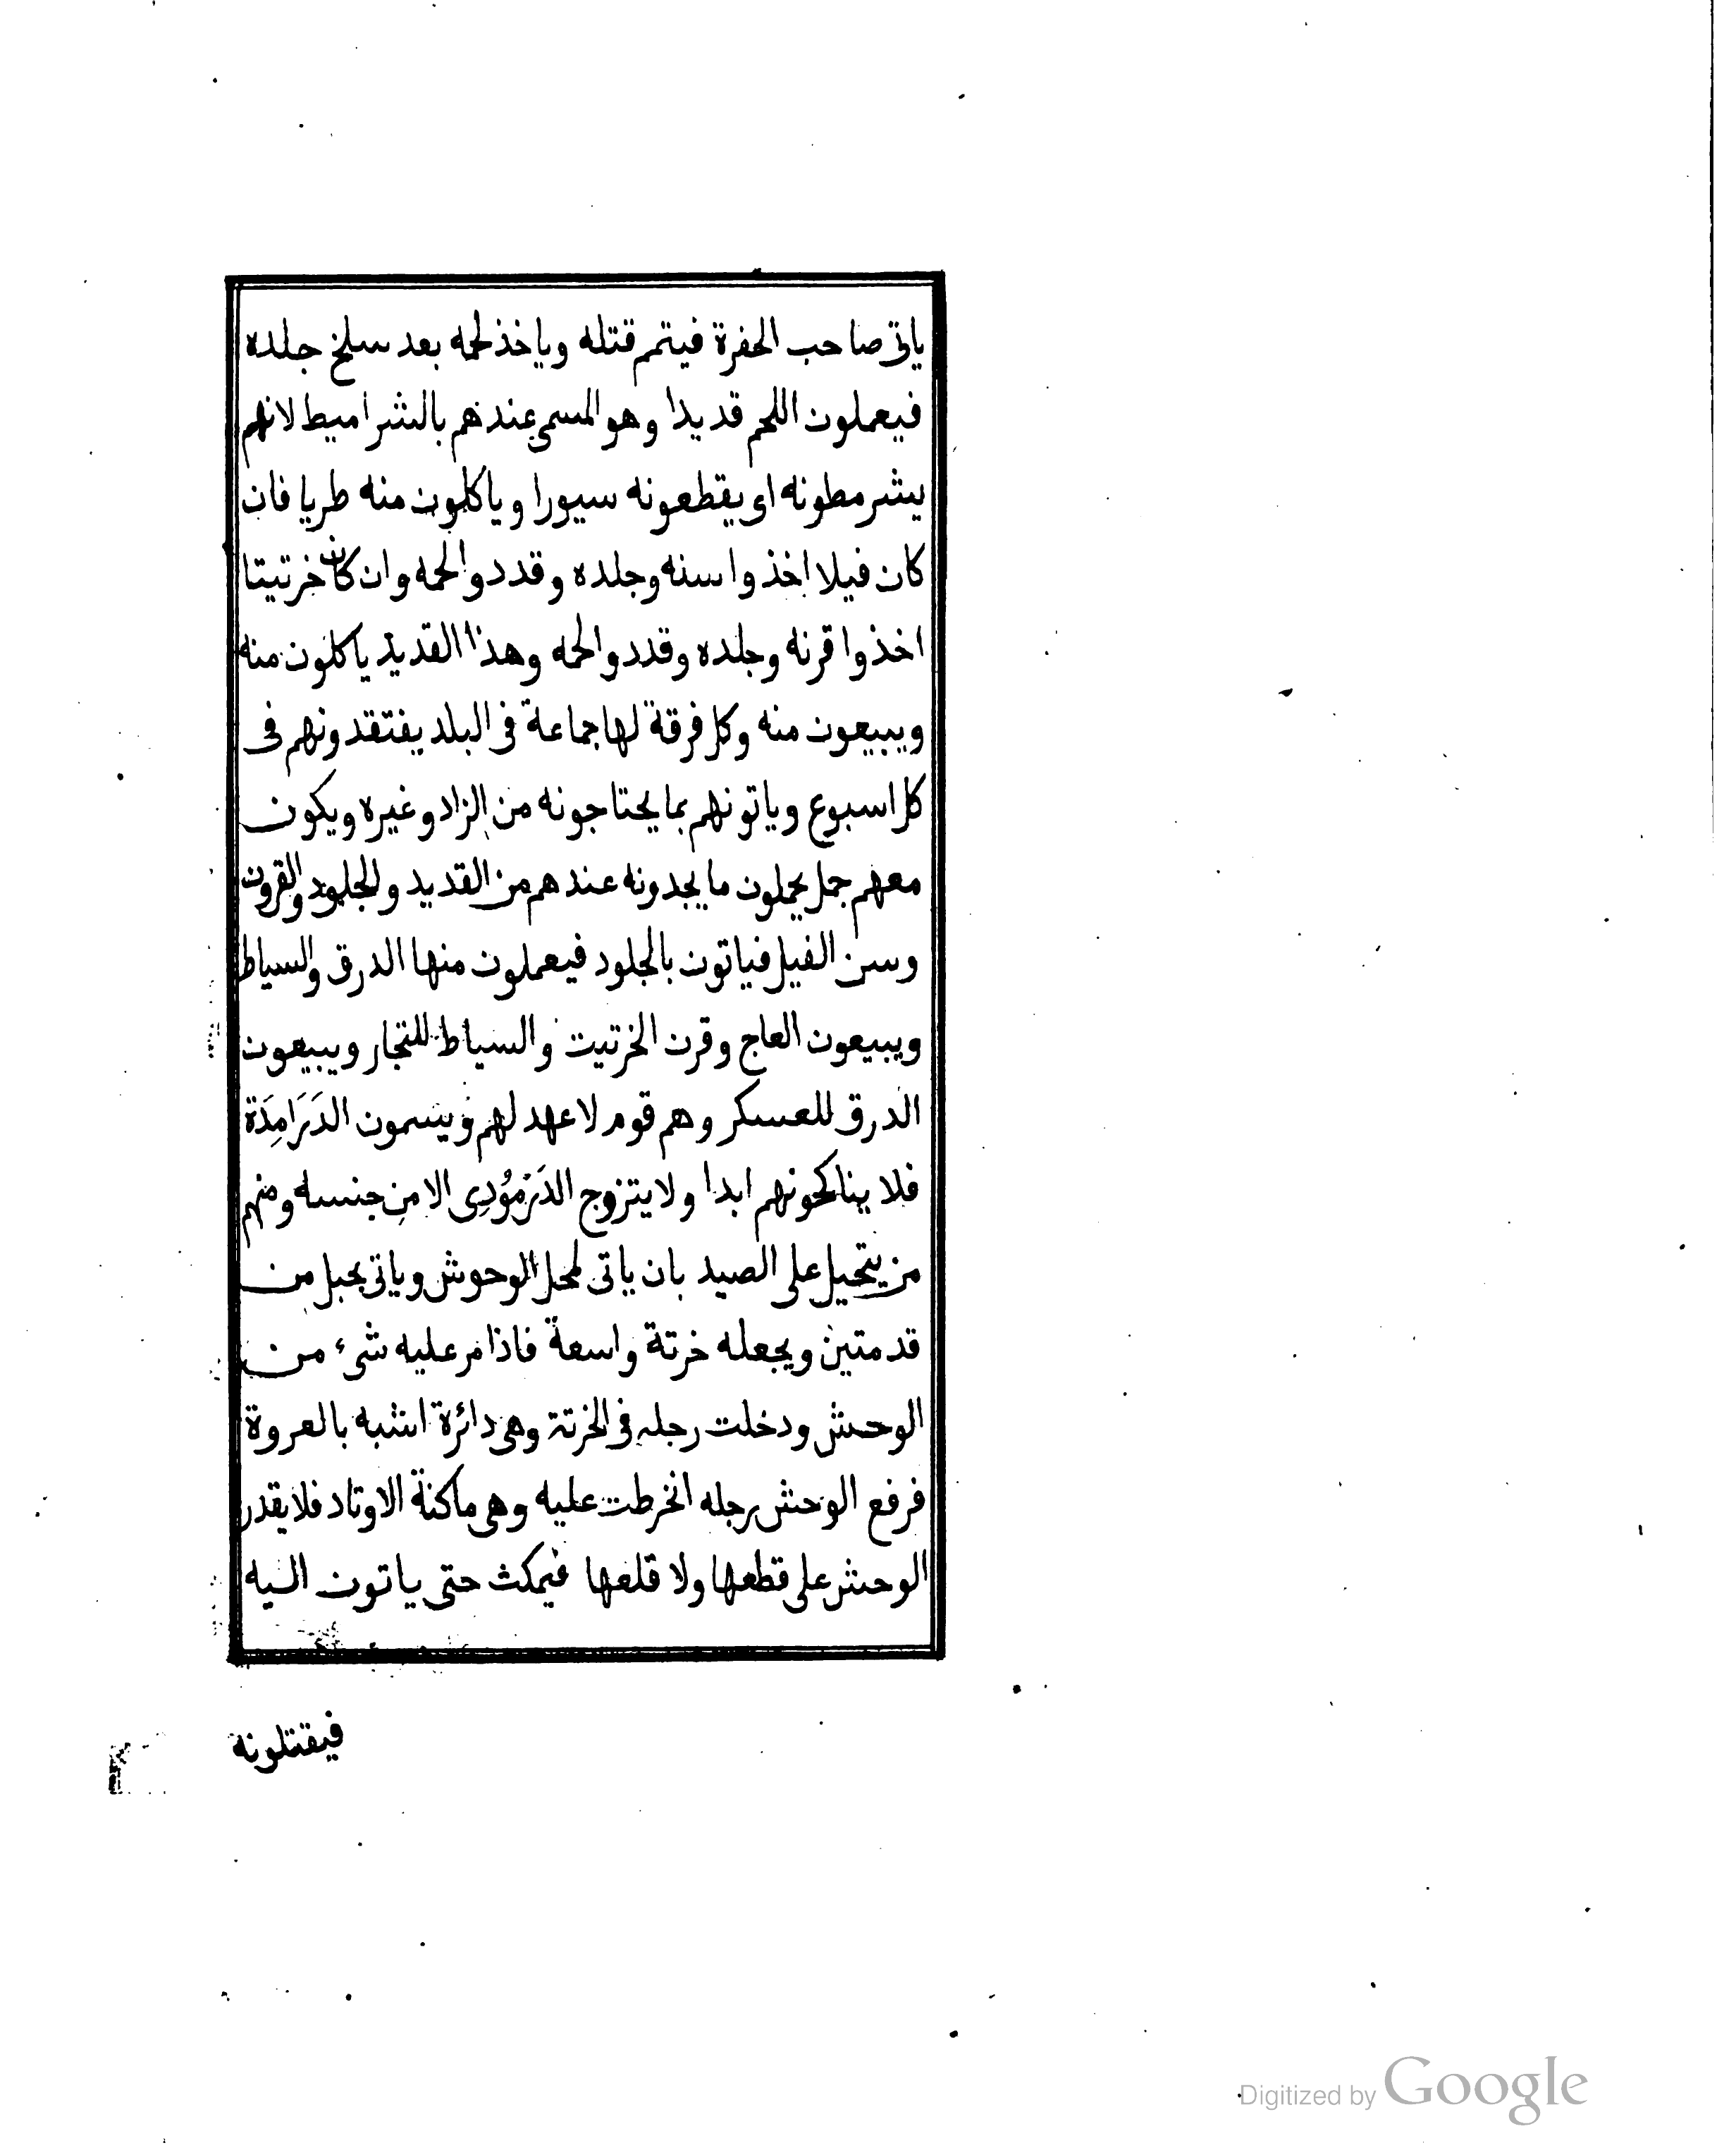 ياتى صاحب الحفرة فيتمم قتله وياخذ لحمه بعد سلخ جلده
فيعملون اللحم قديدا وهو المسمى عندهم بالشراميط لانهم
يشرمطونه اى يقطعونه سيورا وياكلون منه طريا فان
كان فيلا اخذوا سنه وجلده وقددوا لحمه وان كان خرتيتا
اخذوا قرنه وجلده وقددوا لحمه وهذا القديد ياكلون منه
ويبيعون منه وكل فرقة لها جماعة فى البلد يفتقدونهم فى
كل اسبوع وياتونهم بما يحتاجونه من الزاد وغيره ويكون
معهم جمل يحملون ما يجدونه عندهم من القديد والجلود والقرون
وسن الفيل فياتون بالجلود فيعملون منها الدرق والسياط
ويبيعون العاج وقرن الخرتيت والسياط للتجار ويبيعون
الدرق للعسكر وهم قوم لا عهد لهم ويسمون الدَرَامِدَة
فلا يناكحونهم ابدا ولا يتزوج الدَرْمُوُدِى الا مِن جنسه ومنهم
من يتحيل على الصيد بان ياتى لمحل الوحوش وياتى بحبل من
قد متين ويجعله خرتة واسعة فاذا مر عليه شىء من
الوحش ودخلت رجله فى الخرتة وهى دائرة اشبه بالعروة
فرفع الوحش رجله انخرطت عليه وهى ماكنة الاوتاد فلا يقدر
الوحش على قطعها ولا قلعها فيمكث حتى ياتون اليه
فيقتلونه
Digitized by Google